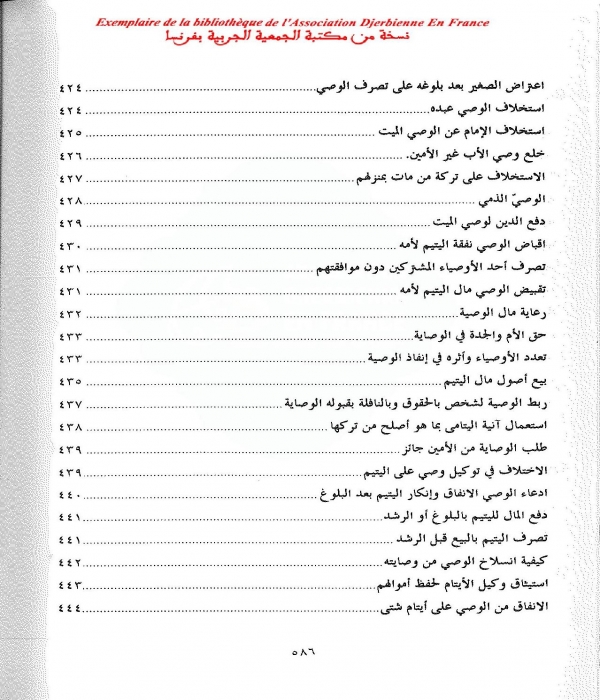 Exemplaire de la bibliothèque de l'Association Djerbienne En France
نسخة من مكتبة الجمعية الجربية بفرنسا
اعتراض الصغير بعد بلوغه على تصرف الوصي ٤٢٤
استخلاف الوصي عبده ٤٢٤
استخلاف الإمام عن الوصي الميت ٤٢٥
خلع وصي الأب غير الأمين. ٤٢٦
الاستخلاف على تركة من مات بمنزلهم ٤٢٧
الوصيّ الذمي ٤٢٨
دفع الدين لوصي الميت ٤٢٩
اقباض الوصي نفقة اليتيم لأمه ٤٣٠
تصرف أحد الأوصياء المشتركين دون موافقتهم ٤٣١
تقبيض الوصي مال اليتيم لأمه ٤٣١
رعاية مال الوصية ٤٣٢
حق الأم والجدة في الوصاية ٤٣٣
تعدد الأوصياء وأثره في إنفاذ الوصية ٤٣٣
بيع أصول مال اليتيم ٤٣٥
ربط الوصية لشخص بالحقوق وبالنافلة بقبوله الوصاية ٤٣٧
استعمال آنية اليتامى بما هو أصلح من تركها ٤٣٨
طلب الوصاية من الأمين جائز ٤٣٩
الاختلاف في توكيل وصي على اليتيم ٤٣٩
ادعاء الوصي الانفاق وإنكار اليتيم بعد البلوغ ٤٤٠
دفع المال لليتيم بالبلوغ أو الرشد ٤٤١
تصرف اليتيم بالبيع قبل الرشد ٤٤١
كيفية انسلاخ الوصي من وصايته ٤٤٢
استيثاق وكيل الأيتام لحفظ أموالهم ٤٤٣
الانفاق من الوصي على أيتام شتى ٤٤٤
٥٨٦